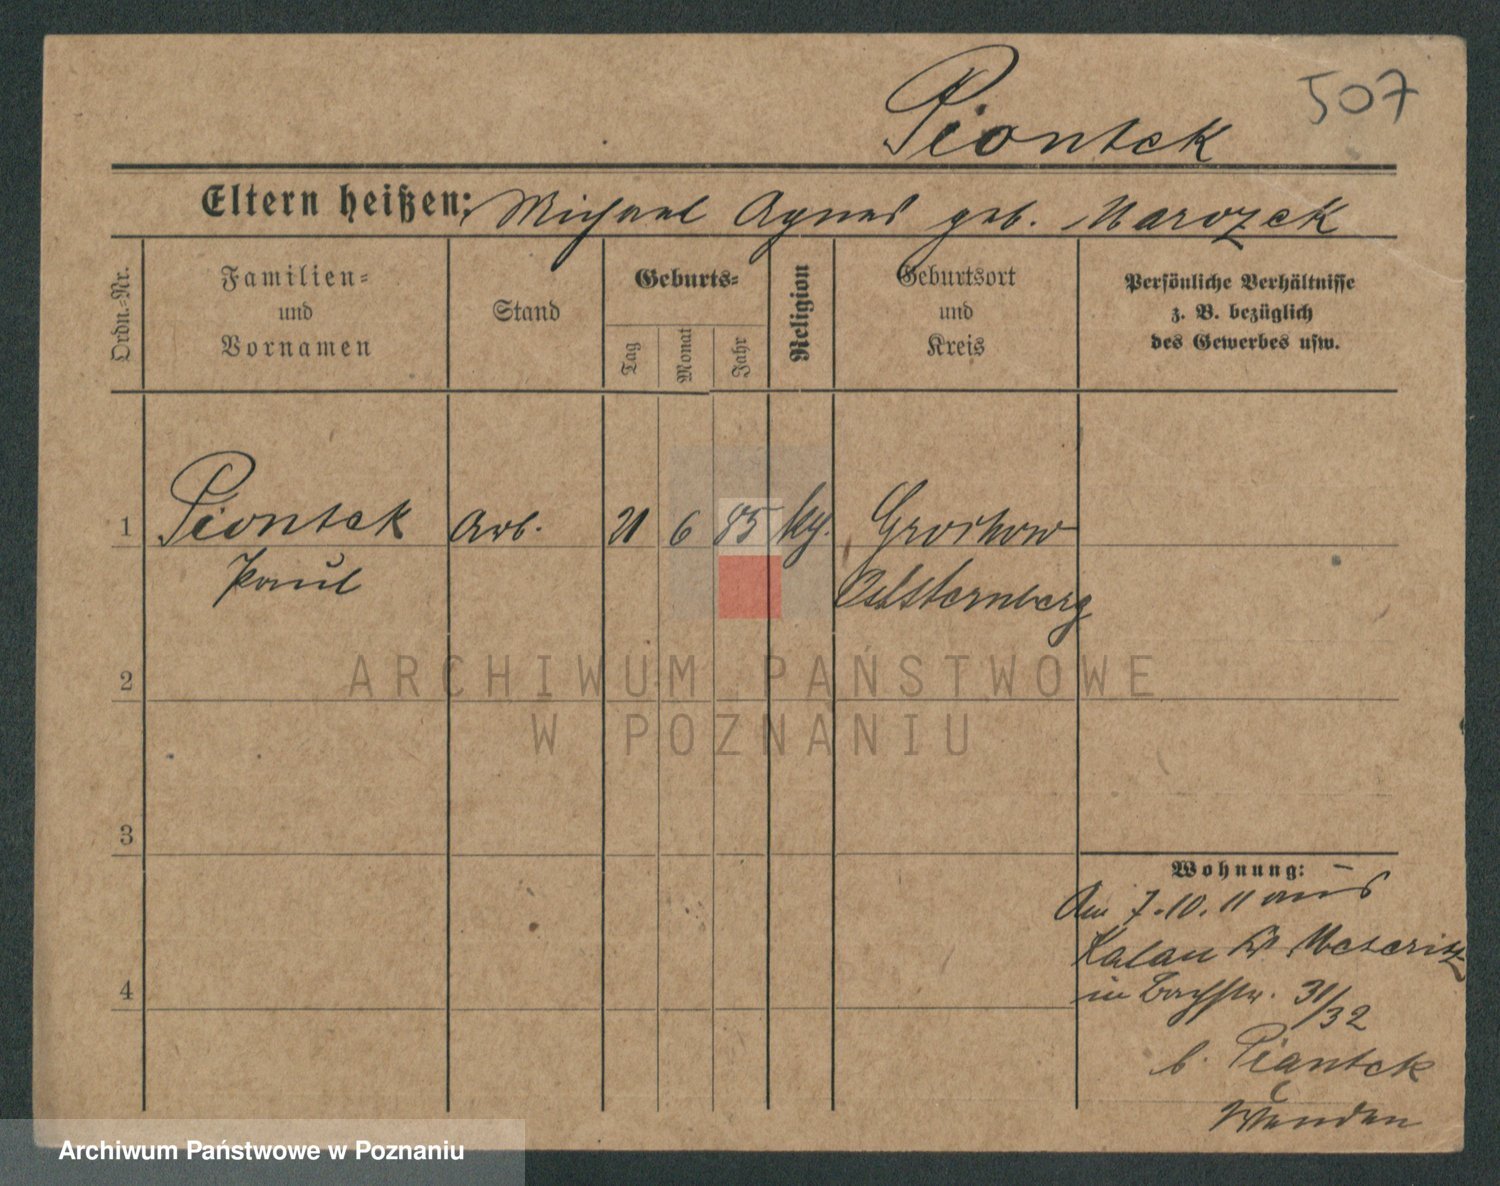 507
Piontek
Eltern heißen: Michael Agnes geb. Marozek
Ordn.-Nr.
Familien-
und
Vornamen
Stand
Geburts-
Tag
Monat
Jahr
Religion
Geburtsort
und
Kreis
Persönliche Verhältnisse
z. B. bezüglich
des Gewerbes usw.
1 Piontek Arb. 21 6 85 kg. Grochow
Paul Oststernberg
2
ARCHIWUM PAŃSTWOWE
W POZNANIU
3
Wohnung:
Am 7.10.11 aus
Kalau Kr Meseritz
in Bachstr. 31/32
4
b. Piontek
Wenden
Archiwum Państwowe w Poznaniu